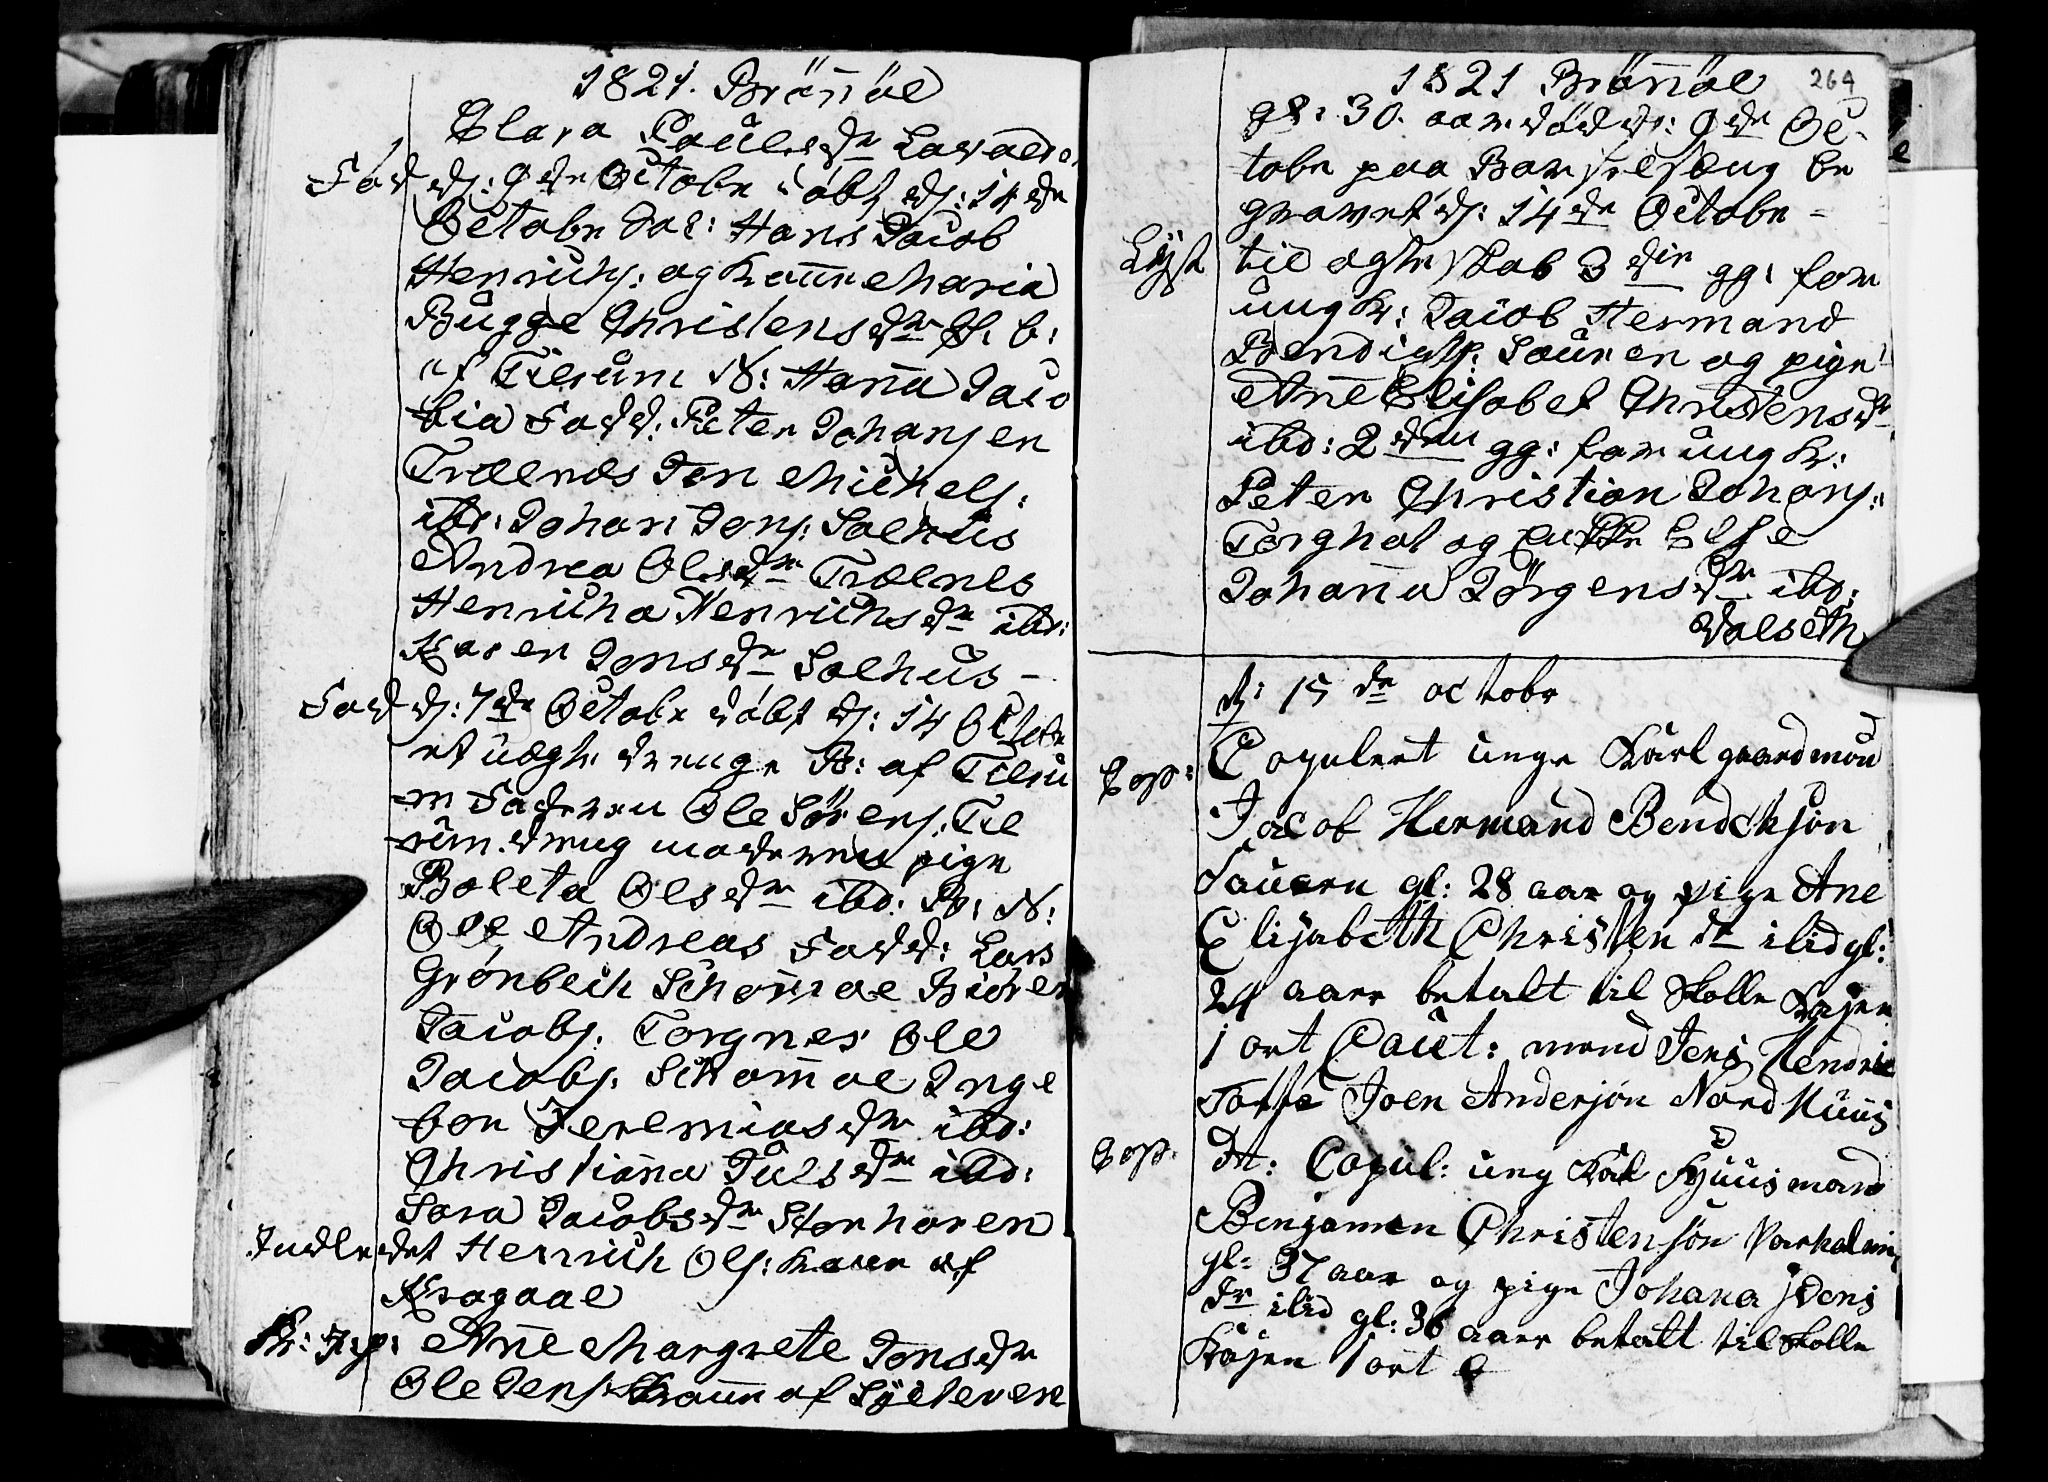 1821. Brönöe
Clara Poulsdr
Fød dj: 9de Octobr døbt dj: 14de
Octobr For: Hans Jacob
Henrichs: og Kone Maria
Bugge Christensdr B:
af Tilrum N: Hanna Jaco
bia Fadd: Peter Johansen
Trælnes Jon Michels:
ibd: Johan Jons: Salhus
Andrea Olsdr Trælnes
Henricha Henrichsdr ibd:
Karen Jonsdr Salhus -
Fød dj: 7de Octobr døbt dj: 14 Octobr
et uægte drenge B: af Tilru
-m Faderen Ole Sörens: Til
rum dreng moderen pige
Boleta Olsdr ibd: B: N:
Ole Andreas Fadd: Lars
Grönbech Schomoe
Jacobs. Torgnes Ole
Jacobs. Schomoe Inge
bor Jeremiasdr ibd:
Christianna Julsdr ibd:
Sara Jacobsdr Storhoren
Indledet Henrich Ols: Kone af
Kragaae
Ane Margrete Jonsdr
Ole Jens: Kone af
264
1821 Brönöe
gl: 30. aar død dj: 9de Oc-
tobr paa Barselseng be
gravet dj: 14de Octobr -
Lyst til ægteskab 3die gg: for
ungk: Jacob Hermand
Bendigts: Sauren og pige
Ane Elisabet Christensdr
ibd: 2den gg: for ungk:
Peter Christian Johans:
Torghat og enke Else
Johanna Jörgensdr ibd:
Valseth
dj: 15de octobr
Cop: Copuleret unge Karl gaardman
Jacob Hermand Bendchsön
Sauern gl: 28 aar og pige Ane
Elisabeth Christen dr ibid gl:
24 aar betalt til Skolle Kasen
1 ort Caut: mend Jens Hendri
Tofte Joen Andersön Nord Huus
Cop. Dt: Copul: ung Kal Huusmand
Benjamen Christensön
gl: 37 aar og pige Johana Jens
dr ibid gl: 36 aar betalt til Skolle
Kasen 1 ort